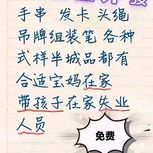 手串 发卡 头绳
吊牌组装笔 各种
式样半城品都有
合适宝妈在家
带孩子在家失业
人员
免费